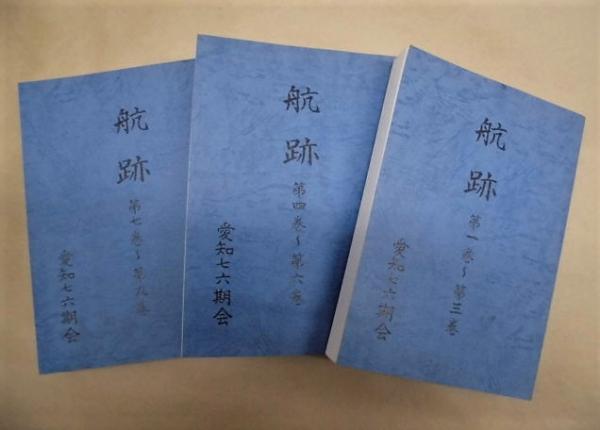 航跡
第一巻~第三巻
愛知七六期会
航跡
第四巻~第六巻
愛知七六期会
航跡
第七巻~第九巻
愛知七六期会